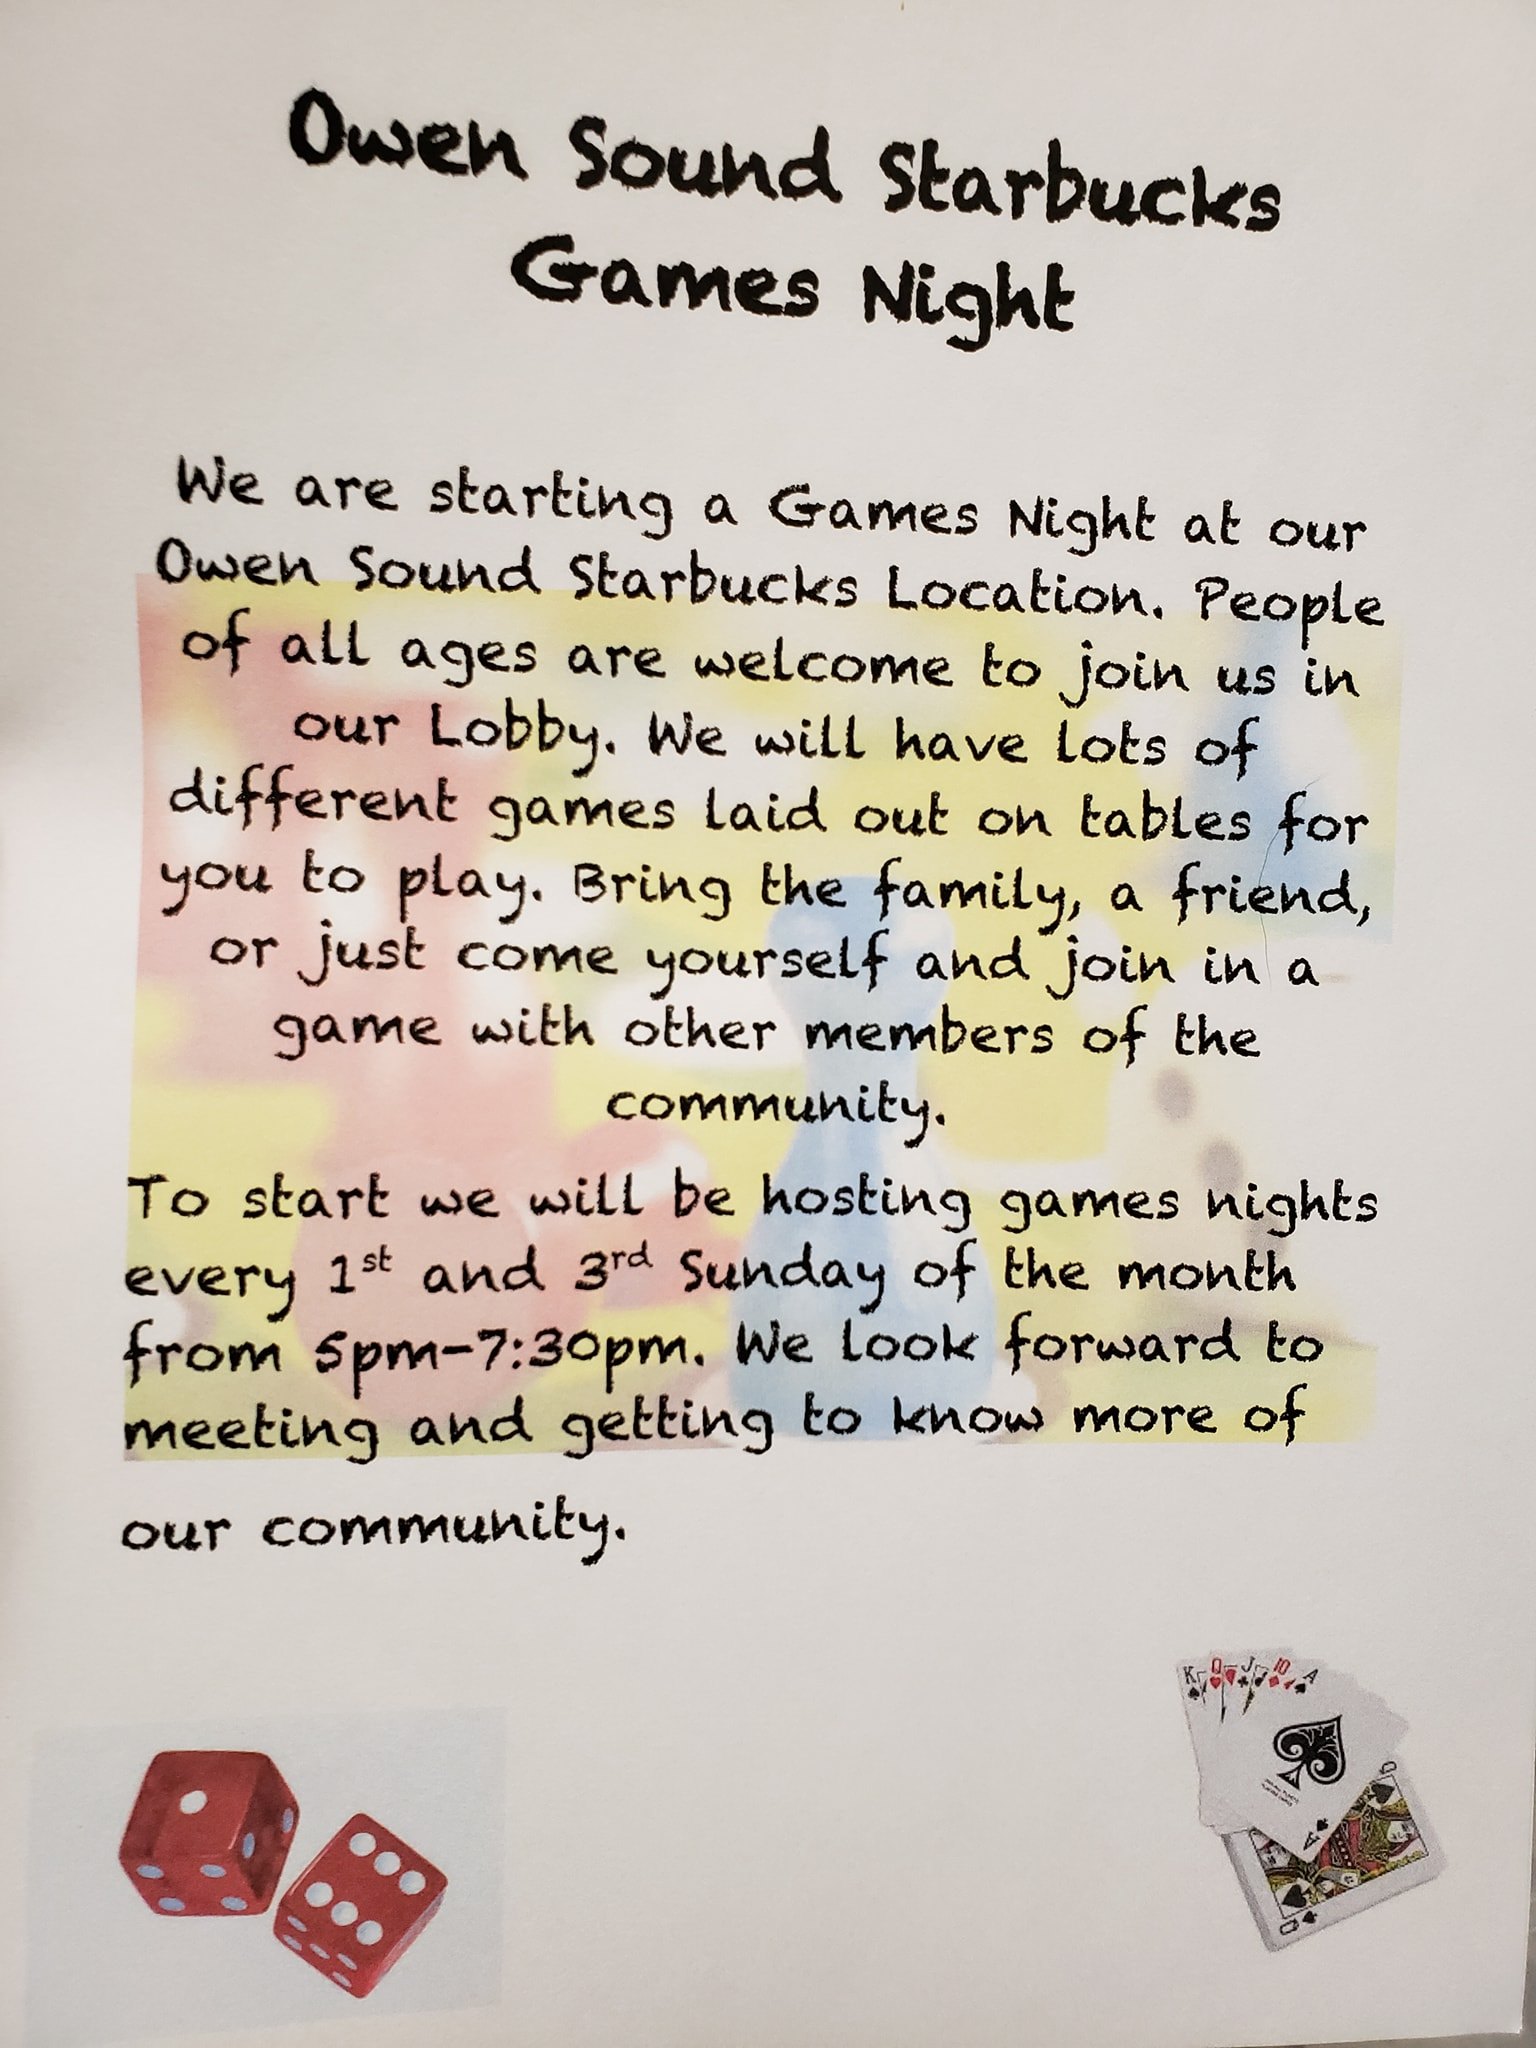 Owen Sound Starbucks
Games Night
We are starting a Games Night at our
Owen Sound Starbucks Location. People
of all ages are welcome to join us in
our Lobby. We will have lots of
different games laid out on tables for
you to play. Bring the family, a friend,
or just come yourself and join in a
game with other members of the
community.
To start we will be hosting games nights
every 1st and 3rd Sunday of the month
from 5pm-7:30pm. We look forward to
meeting and getting to know more of
our community.
K Q J 10 A
A
Q
Q